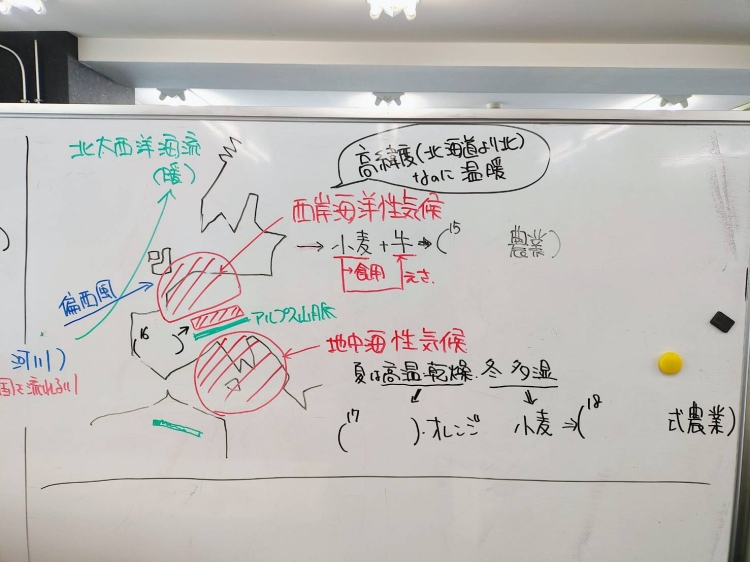 北大西洋海流
(暖)
高緯度(北海道より北)
なのに温暖
西岸海洋性気候
→ 小麦+牛→(15 農業)
→食用 えさ
偏西風
アルプス山脈
(16 )
地中海性気候
夏は高温乾燥.冬多湿
(17 )・オレンジ 小麦⇒(18 式農業)
)
河川)
国で流れる川